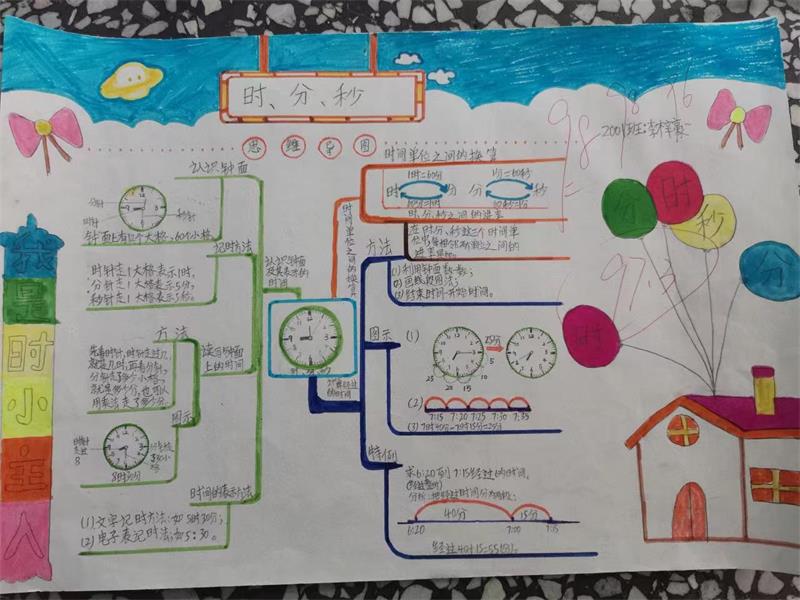 时、分、秒
思维导图
2001班:李梓
98 98 96
97.3
我是时间小主人
认识钟面
分针
时针
秒针
钟面上有12个大格,60个小格
记时方法
时针走1大格表示1时,
分针走1大格表示5分,
秒针走1大格表示5秒。
认识钟面
及其表示的
时间
方法
先看时针,时针走过几
就是几时,再看分针,
分针走了多少小格,
就是多少分,也可以
用乘法
读写钟面
上的时间
图示
8时30分
时间的表示方法
(1)文字记时方法:如5时30分;
(2)电子表记时方法:如5:30。
时间单位之间的换算
时间单位之间的换算
1时=60分
1分=60秒
时 分 分 秒
60分=1时
60秒=1分
时、分、秒之间的进率
在时、分、秒这三个时间单
位中,每相邻两个单位之间的
进率是60。
方法
(1)利用钟面数数;
(2)画线段图法;
(3)结束时间-开始时间。
计算经过
的时间
图示
(1)
25分
5
10
15
20
25
(2)
7:15 7:20 7:25 7:30 7:35
(3)7时40分-7时15分=25分
特例
求6:20到7:15经过的时间。
分析:把经过时间分为两段;
40分
15分
6:20
7:00
7:15
经过40+15=55(分)。
分
时
秒
分
时